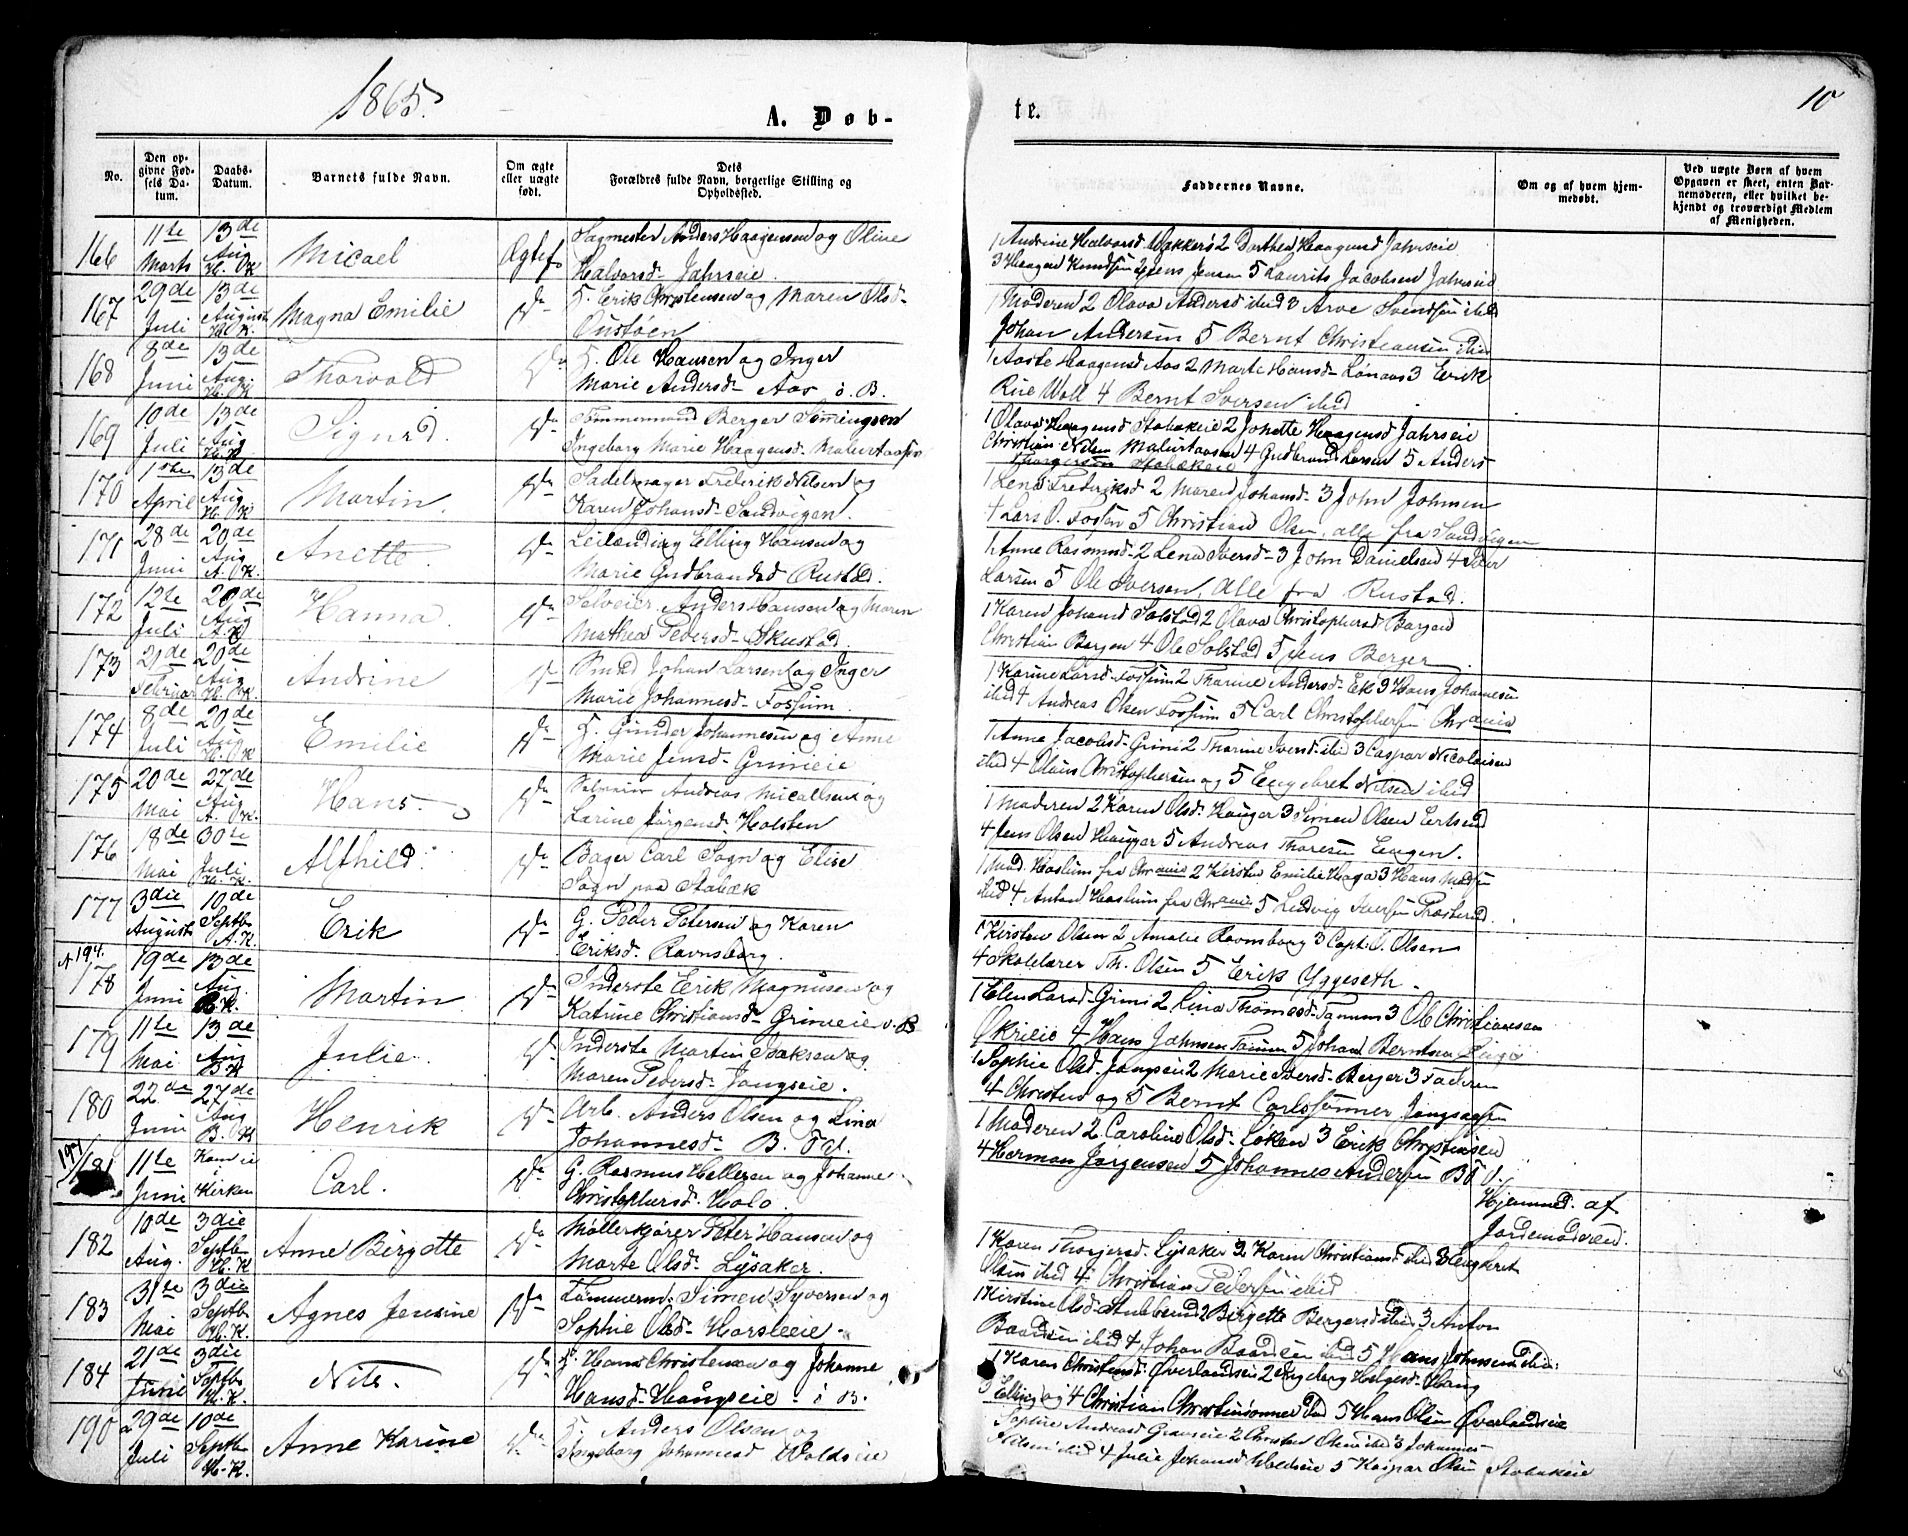 1865.
A. Døb-
te.
10
No.
Den op-
givne Fød-
sels Da-
tum.
Daabs-
Datum.
Barnets fulde Navn.
Om ægte
eller uægte
født.
Dets
Forældres fulde Navn, borgerlige Stilling og
Opholdssted.
Faddernes Navne.
Om og af hvem hjem-
medøbt.
Ved uægte Børn af hvem
Opgaven er skeet, enten Bar-
nemoderen, eller hvilket be-
kjendt og troværdigt Medlem
af Menigheden.
166 11te Marts 13de Aug. H.K. Micael Ægtef.
Sagmester Anders Haagensen og Oline
Halvorsd. Jahrseie.
1 Andrine Halvorsd. Vækkerø 2 Dorthea Haagensd Jahrseie
3 Haagen Knudsen 4 Jens Jensen 5 Laurits Jacobsen Jahrseie
167 29de Juli 13de August H.K. Magna Emilie Do
F. Erik Christensen og Maren Olsd.
Oustøen
1 Moderen 2 Olava Andersd ibid 3 Arve Svendsen ibid
Johan Andersen 5 Bernt Christiansen ibid
168 8de Juni 13de Aug. H.K. Thorvald Do
F. Ole Hansen og Inger
Marie Andersd. Aas i B.
1 Aaste Haagensd Aas 2 Marte Hansd. Lønaas 3 Erick
Rue Woll 4 Bernt Iversen ibid
169 10de Juli 13de Aug H.K. Sigurd. Do
Tømmermand Berger Simingsen
Ingeborg Marie Haagensd.
1 Olava Haagensd Stabækeie 2 Jonette Haagensd Jahrseie
Christian Nilsen 4 Gudbrand Larsen 5 Anders
Thorgersen Stabækeie
170 1ste April 13de Aug H.K. Martin. Do
Sadelmager Frederik Nilsen og
Karen Johansd. Sandvigen.
1 Lena Frederiksd 2 Maren Johansd. 3 John Johnsen
4 Lars O. Fossen 5 Christian Olsen, alle fra Sandvigen
171 28de Juni 20de Aug A.K. Anette. Do
Leilænding Elling Hansen og
Marie Gudbrandsd Rustad.
1 Anne Rasmusd. 2 Lena Iversd. 3 John Danielsen 4 Iver
Larsen 5 Ole Iversen. Alle fra Rustad.
172 12te Juli 20de Aug A.K. Hanna. Do
Selveier Anders Hansen og Maren
Mathea Pedersd. Skustad
1 Karen Johansd Solstad 2 Olava Christophersd Bergen
Christian Bergen 4 Ole Solstad 5 Jens Berger
173 21de Februar 20de Aug H.K. Andrine Do
Smed Johan Larsen og Inger
Marie Johannesd. Fossum.
1 Karine Larsd. Fossum 2 Tharine Andersd. Ek 3 Hans Johannesen
ibid 4 Andreas Olsen Fossum 5 Carl Christophersen Chrania
174 8de Juli 20de Aug H.K. Emilie Do
F. Gunder Johannesen og Anne
Marie Jensd. Grinieie
1 Anne Jacobsd. Grini 2 Tharine Iversd. ibid 3 Caspar Nicolaisen
ibid 4 Olaus Christophersen og 5 Engebret Nilsen ibid
175 20de Mai 27de Aug A.K. Hans. Do
Selveier Andreas Micalsen og
Karine Jørgensd. Holsten
1 Moderen 2 Karen Olsd. Hauger 3 Simen Olsen
4 Jens Olsen Hauger 5 Andreas Thoresen Engen.
176 18de Mai 30te Juli H.K. Alfhild. Do
Bager Carl Sogn og Elise
Sogn paa Stabæk
1 Mad. Haslum fra Chrania 2 Kirsten Emilie Haga 3 Hans
ibid 4 Anton Haslum fra Chrania 5 Ludvig Iversen
177 3die August 10de Septbr A.K. Erik Do
G. Peder Petersen og Karen
Eriksd. Ravnsborg.
1 Kirsten Olsen 2 Amalie Ravnsborg 3 Capt. O. Olsen
4 Skolelærer Th. Olsen 5 Erik Yggeseth.
194.
178 19de Juni 13de Aug. B.K. Martin Do
Inderste Erik Magnusen og
Katrine Christiansd. Grinieie i B
1 Elen Larsd. Grini 2 Lina Thomesd. Tanum 3 Ole Christiansen
4 Hans Jahnsen Tanum 5 Johan Berntsen
179 11te Mai 13de Aug B.K. Julie. Do
Inderste Martin Isaksen og
Maren Pedersd. Jongseie.
1 Sophie Olsd. Jongseie 2 Marie Iversd. Berger 3 Faderen
4 Christen og 5 Bernt Carlssønner
180 22de Juni 27de Aug B.K. Henrik Do
Arb. Anders Olsen og Lina
Johannesd. B.
1 Moderen 2 Caroline Olsd. Løken 3 Erik Christensen
4 Herman Jørgensen 5 Johannes Andersen
197
181 11te Juni Kom ei i Kirken Carl. Do
G. Rasmus Hellesen og Johanne
Christophersd. Holo.
Hjemmed. af
Jordemoderen.
182 10de Aug. 3die Septbr H.K. Anne Birgette Do
Møllerkjører Peter Hansen og
Marte Olsd. Lysaker.
1 Karen Thorgersd. Lysaker 2 Karen Christiansd. ibid 3 Engebret
Olsen ibid 4 Christian Pedersen ibid
183 31te Mai 3die Septbr H.K. Agnes Jensine Do
Tømmerm. Simen Syversen og
Sophie Olsd. Horsleeie.
1 Kirstine Olsd. Stubberud 2 Birgette Bergersd ibid 3 Anton
Baardsen ibid 4 Johan Baardsen ibid 5 Hans Johnsen ibid.
184 21de Juni 3die Septbr H.K. Nils. Do
F. Hans Christensen og Johanne
Hansd. Haugseie i B.
1 Karen Christensd. Øverlandseie 2 Ingeborg Helgesd. Haug
3 Elling og 4 Christian Christiansønner ibid 5 Hans Olsen Øverlandseie
190 29de Juli 10de Septbr H.K. Anne Karine Do
F. Anders Olsen og
Ingeborg Johannesd Woldseie
Sophie Andreasd Gravseie 2 Christen Olsen ibid 3 Johannes
Nilsen ibid 4 Julie Johansd Woldseie 5 Kaspar Olsen Stabækeie